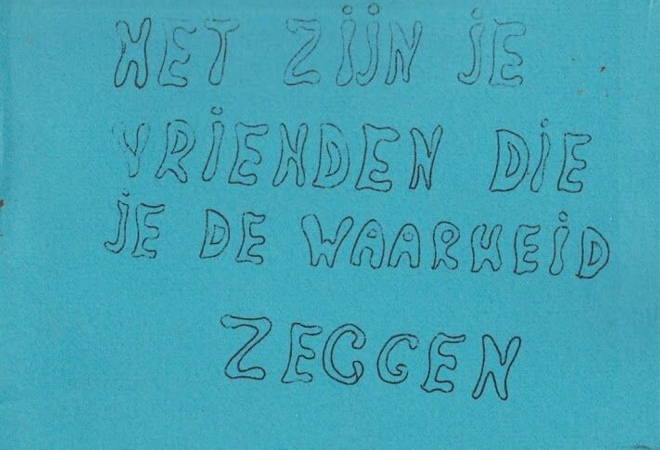 HET ZIJN JE
VRIENDEN DIE
JE DE WAARHEID
ZEGGEN